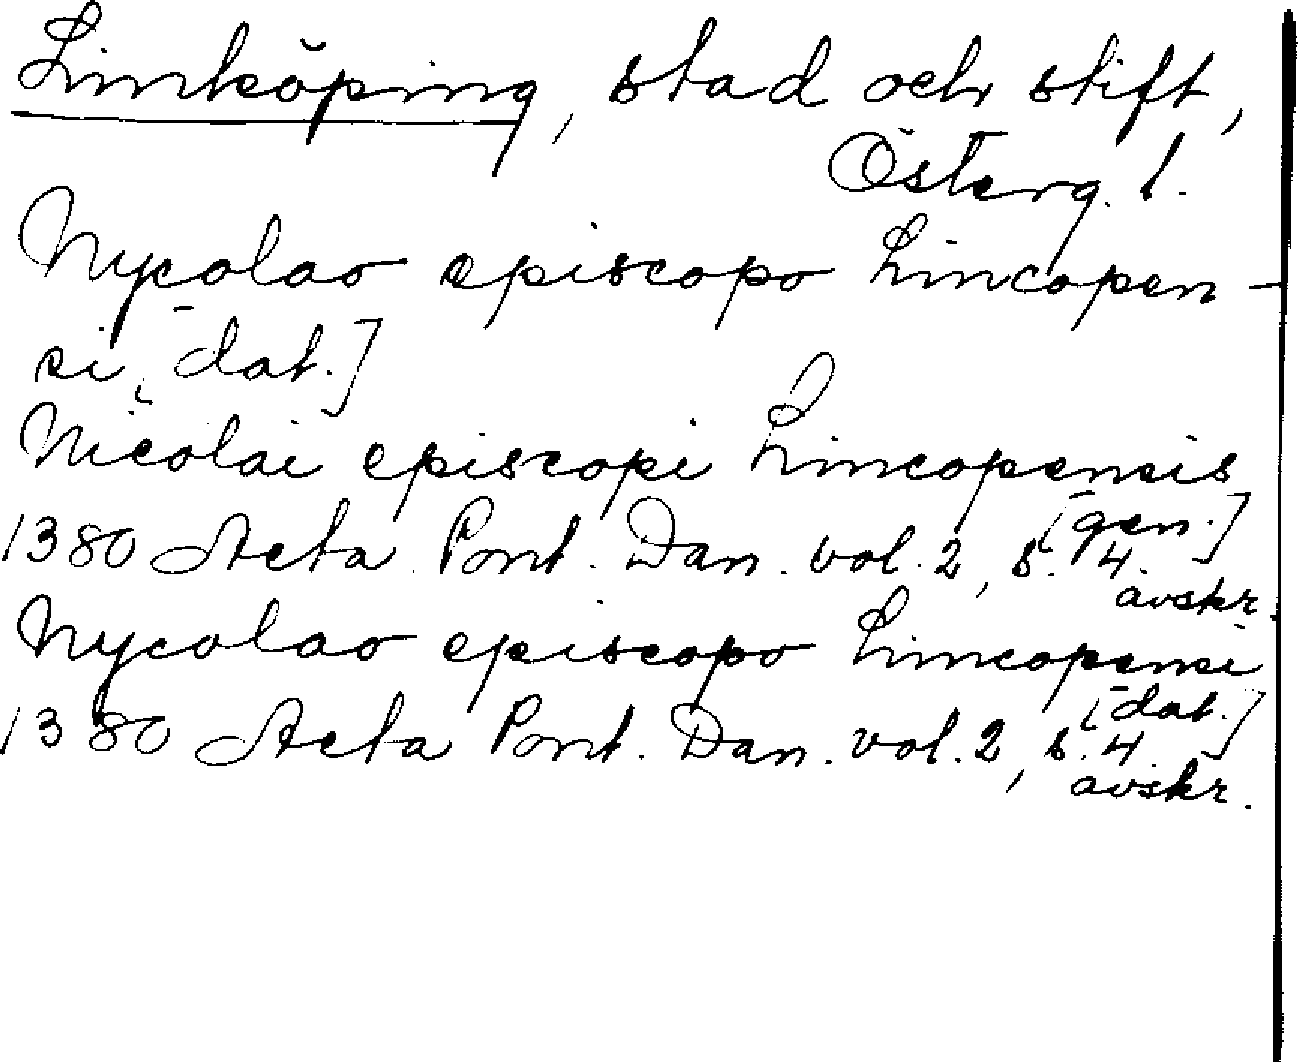 Linköping, stad och stift,
Österg. l.
Nycolao episcopo Lincopen-
si [dat.]
Nicolai episcopi Lincopensis
[gen.]
1380 Acta Pont. Dan. vol. 2, s. 4.
avskr.
Nycolao episcopo Lincopensi
[dat.]
1380 Acta Pont. Dan. vol. 2, s. 4.
avskr.